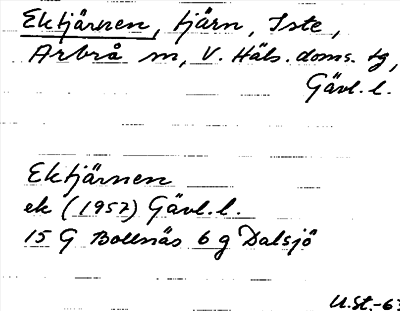 Ektjärnen, tjärn, Iste,
Arbrå sn, V. Häls. doms. tg,
Gävl. l.
Ektjärnen
ek (1957) Gävl. l.
15 G Bollnäs 6 g Dalsjö
U.St.-63